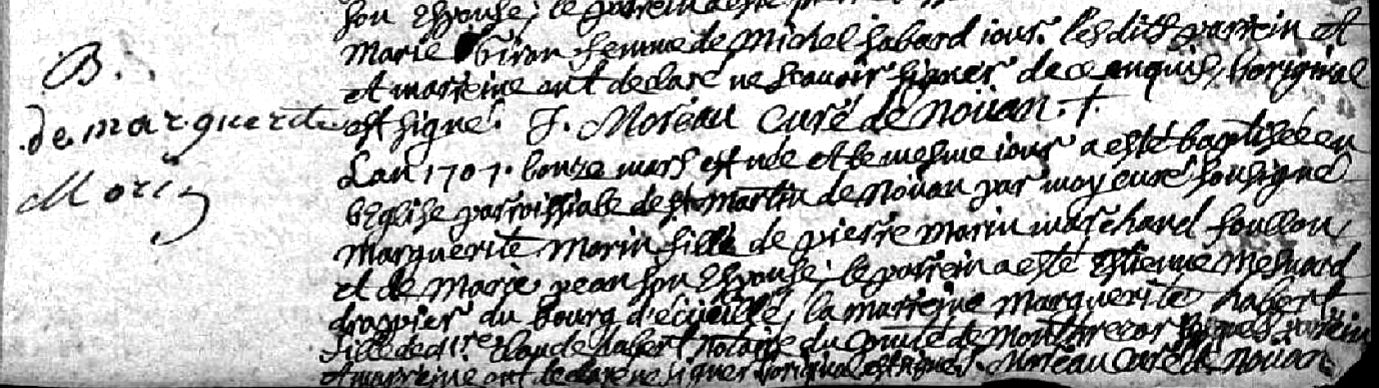 B.
de marguerite
Morin
son espouse; le parrein a esté
Marie Giron femme de Michel habard iour. lesdits parrein et
et marreine ont declaré ne scavoir signer de ce enquis, l'original
est signé. J. Moreau curé de noüan. +.
Lan 1707. l'onze mars est née et le mesme iour a esté baptisée en
l'Eglise parroissiale de st martin de noüan par moy curé soussigné
marguerite morin fille de pierre morin marchand foullon,
et de Marie pean son espouse; le parrein a esté estienne mesnard
drappier du bourg d'ecueillé, la marreine marguerite habert
fille de me. claude habert notaire du Comté de Montrezor lesquels parrein
et marreine ont declaré ne signer l'original est signé J. Moreau curé de noüan